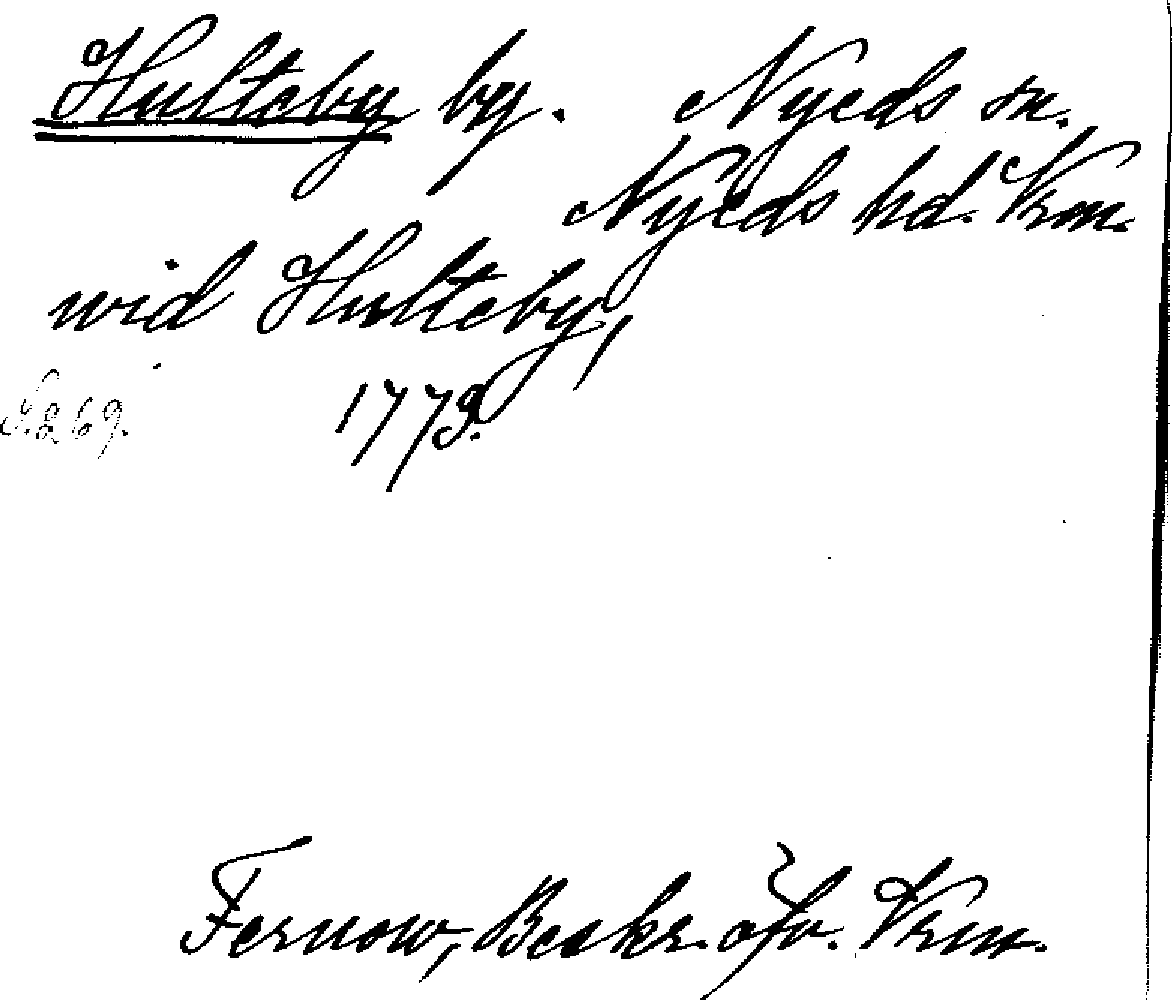 Hulteby by. Nyeds sn.
Nyeds hd. Vrm.
wid Hulteby,
S. 269. 1779.
Fernow, Beskr. öfv. Vrm.